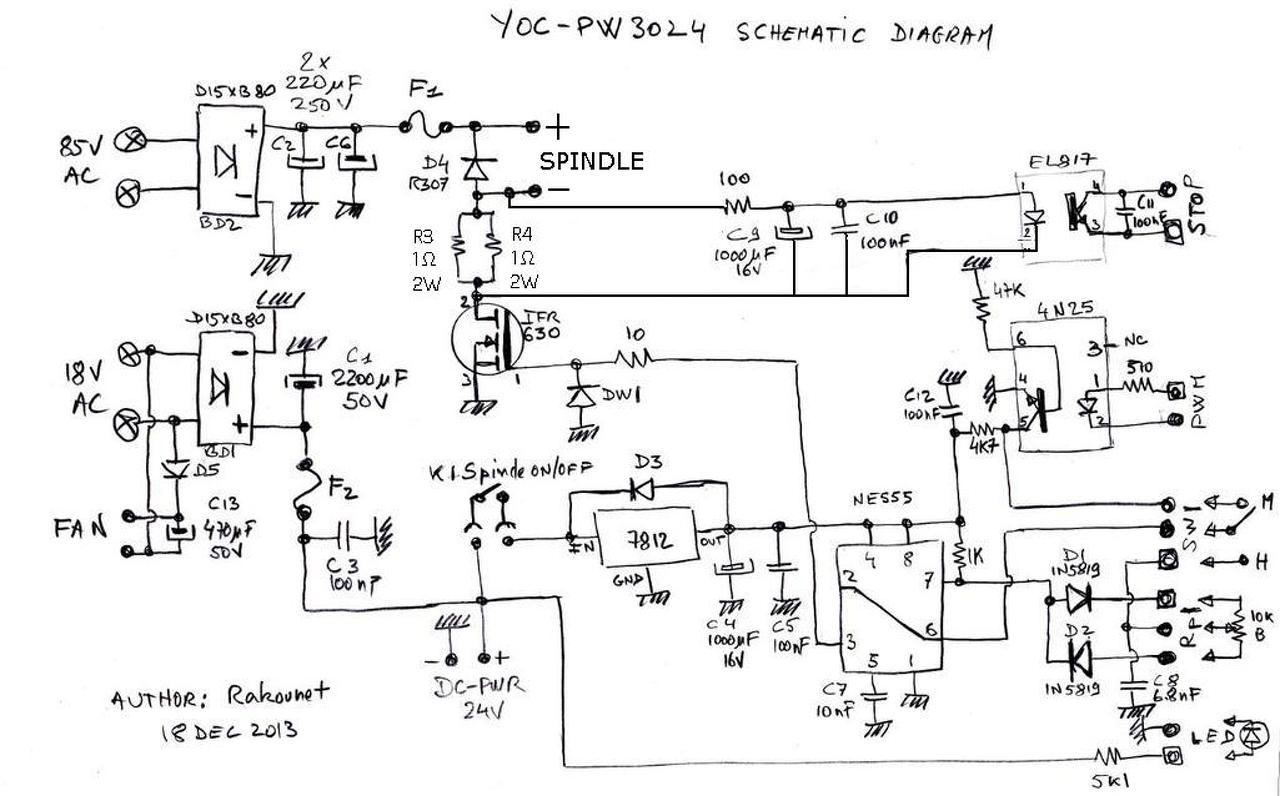 YOC-PW3024 SCHEMATIC DIAGRAM
D15XB80
2x
220µF
250V
F1
85V
AC
+
-
C2
C6
BD2
D4
R307
+
SPINDLE
-
R3
1Ω
2W
R4
1Ω
2W
100
C9
1000µF
16V
C10
100nF
EL817
1
2
4
3
C11
100nF
STOP
D15XB80
18V
AC
-
+
BD1
C1
2200µF
50V
2
IFR
630
3
1
10
DW1
47K
4N25
6
4
5
3
NC
1
2
510
PWM
C12
100nF
4K7
D5
C13
470µF
50V
FAN
F2
C3
100nF
K1.Spinde ON/OFF
D3
IN
7812
OUT
GND
C4
1000µF
16V
C5
100nF
NE555
4
8
2
7
6
3
5
1
1K
C7
10nF
D1
1N5819
D2
1N5819
SW1
M
H
RP1
10K
B
C8
6.8nF
LED
5K1
- +
DC-PWR
24V
AUTHOR: Rakounet
18 DEC 2013